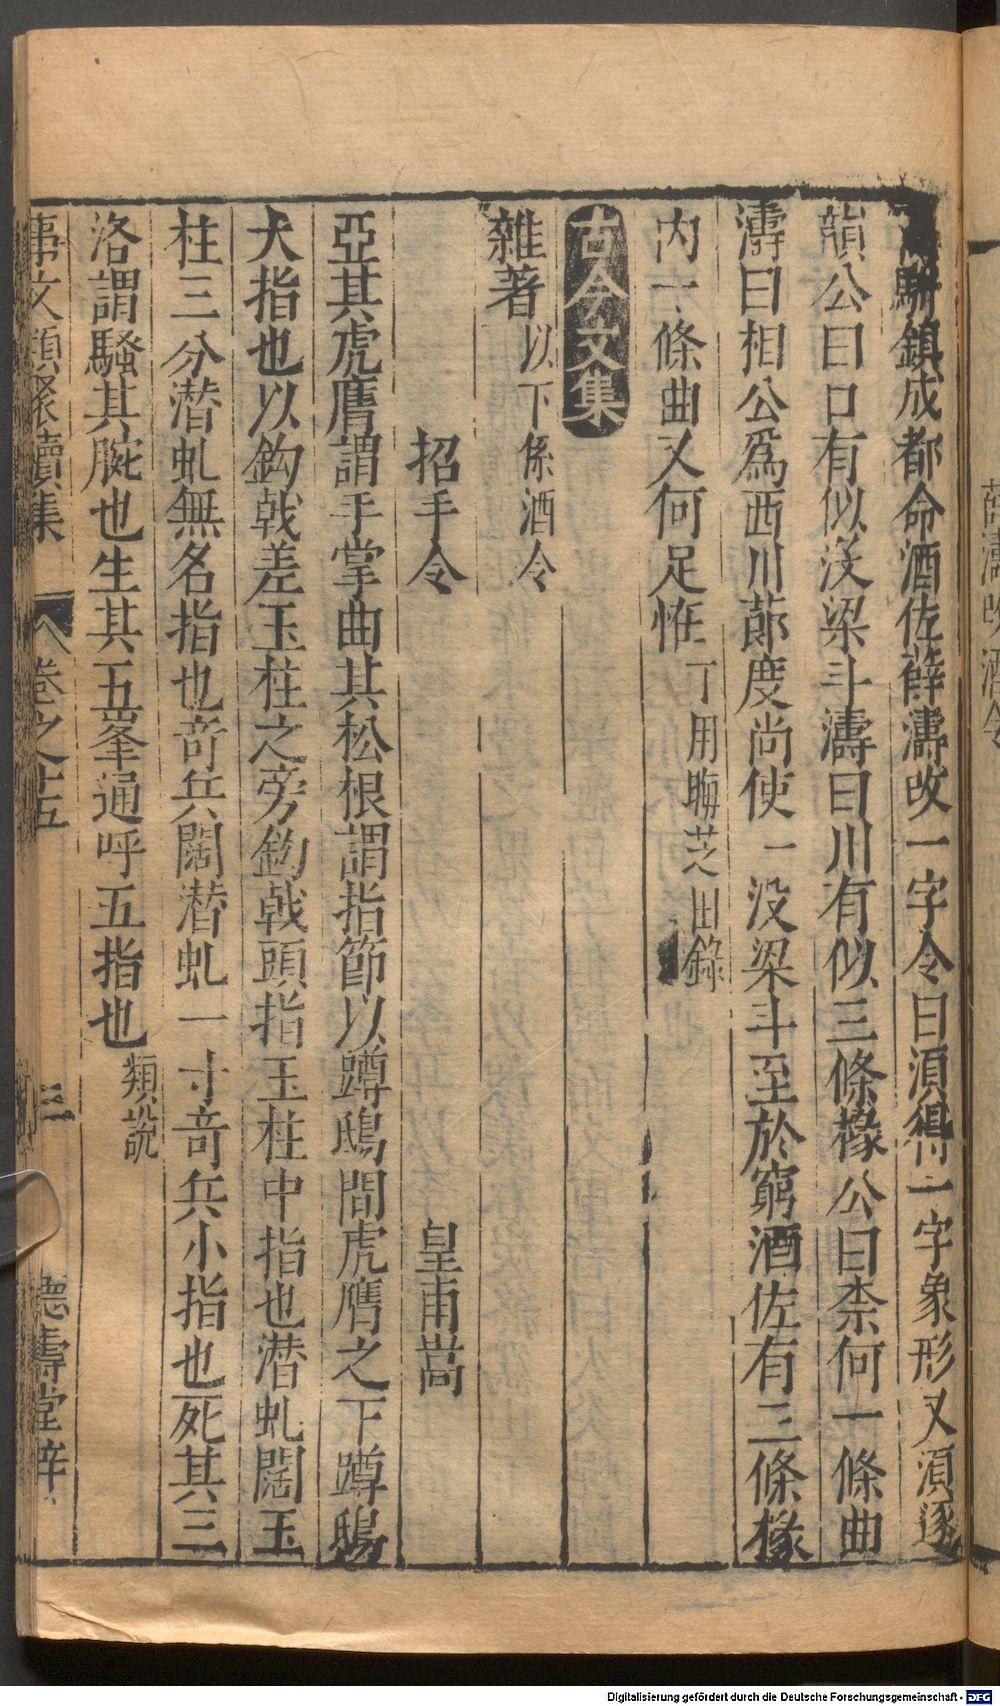 駢鎮成都命酒佐薛濤改一字令曰湏得一字象形又湏逐
韻公曰口有似没梁斗濤曰川有似三條椽公曰柰何一條曲
濤曰相公爲西川節度尚使一没梁斗至於窮酒佐有三條椽
内一條曲又何足恠 丁用晦芝田錄
古今文集
雜著 以下係酒令
招手令 皇甫嵩
亞其虎膺謂手掌曲其松根謂指節以蹲鴟間虎膺之下蹲鴟
大指也以鈎戟差玉柱之旁鈎戟頭指玉柱中指也潜虬闊玉
柱三分潜虬無名指也竒兵闊潜虬一寸竒兵小指也死其三
洛謂騷其腕也生其五峯通呼五指也 類説
事文類聚續集 卷之十五 三 德壽堂梓
薛濤改酒令
Digitalisierung gefördert durch die Deutsche Forschungsgemeinschaft - DFG